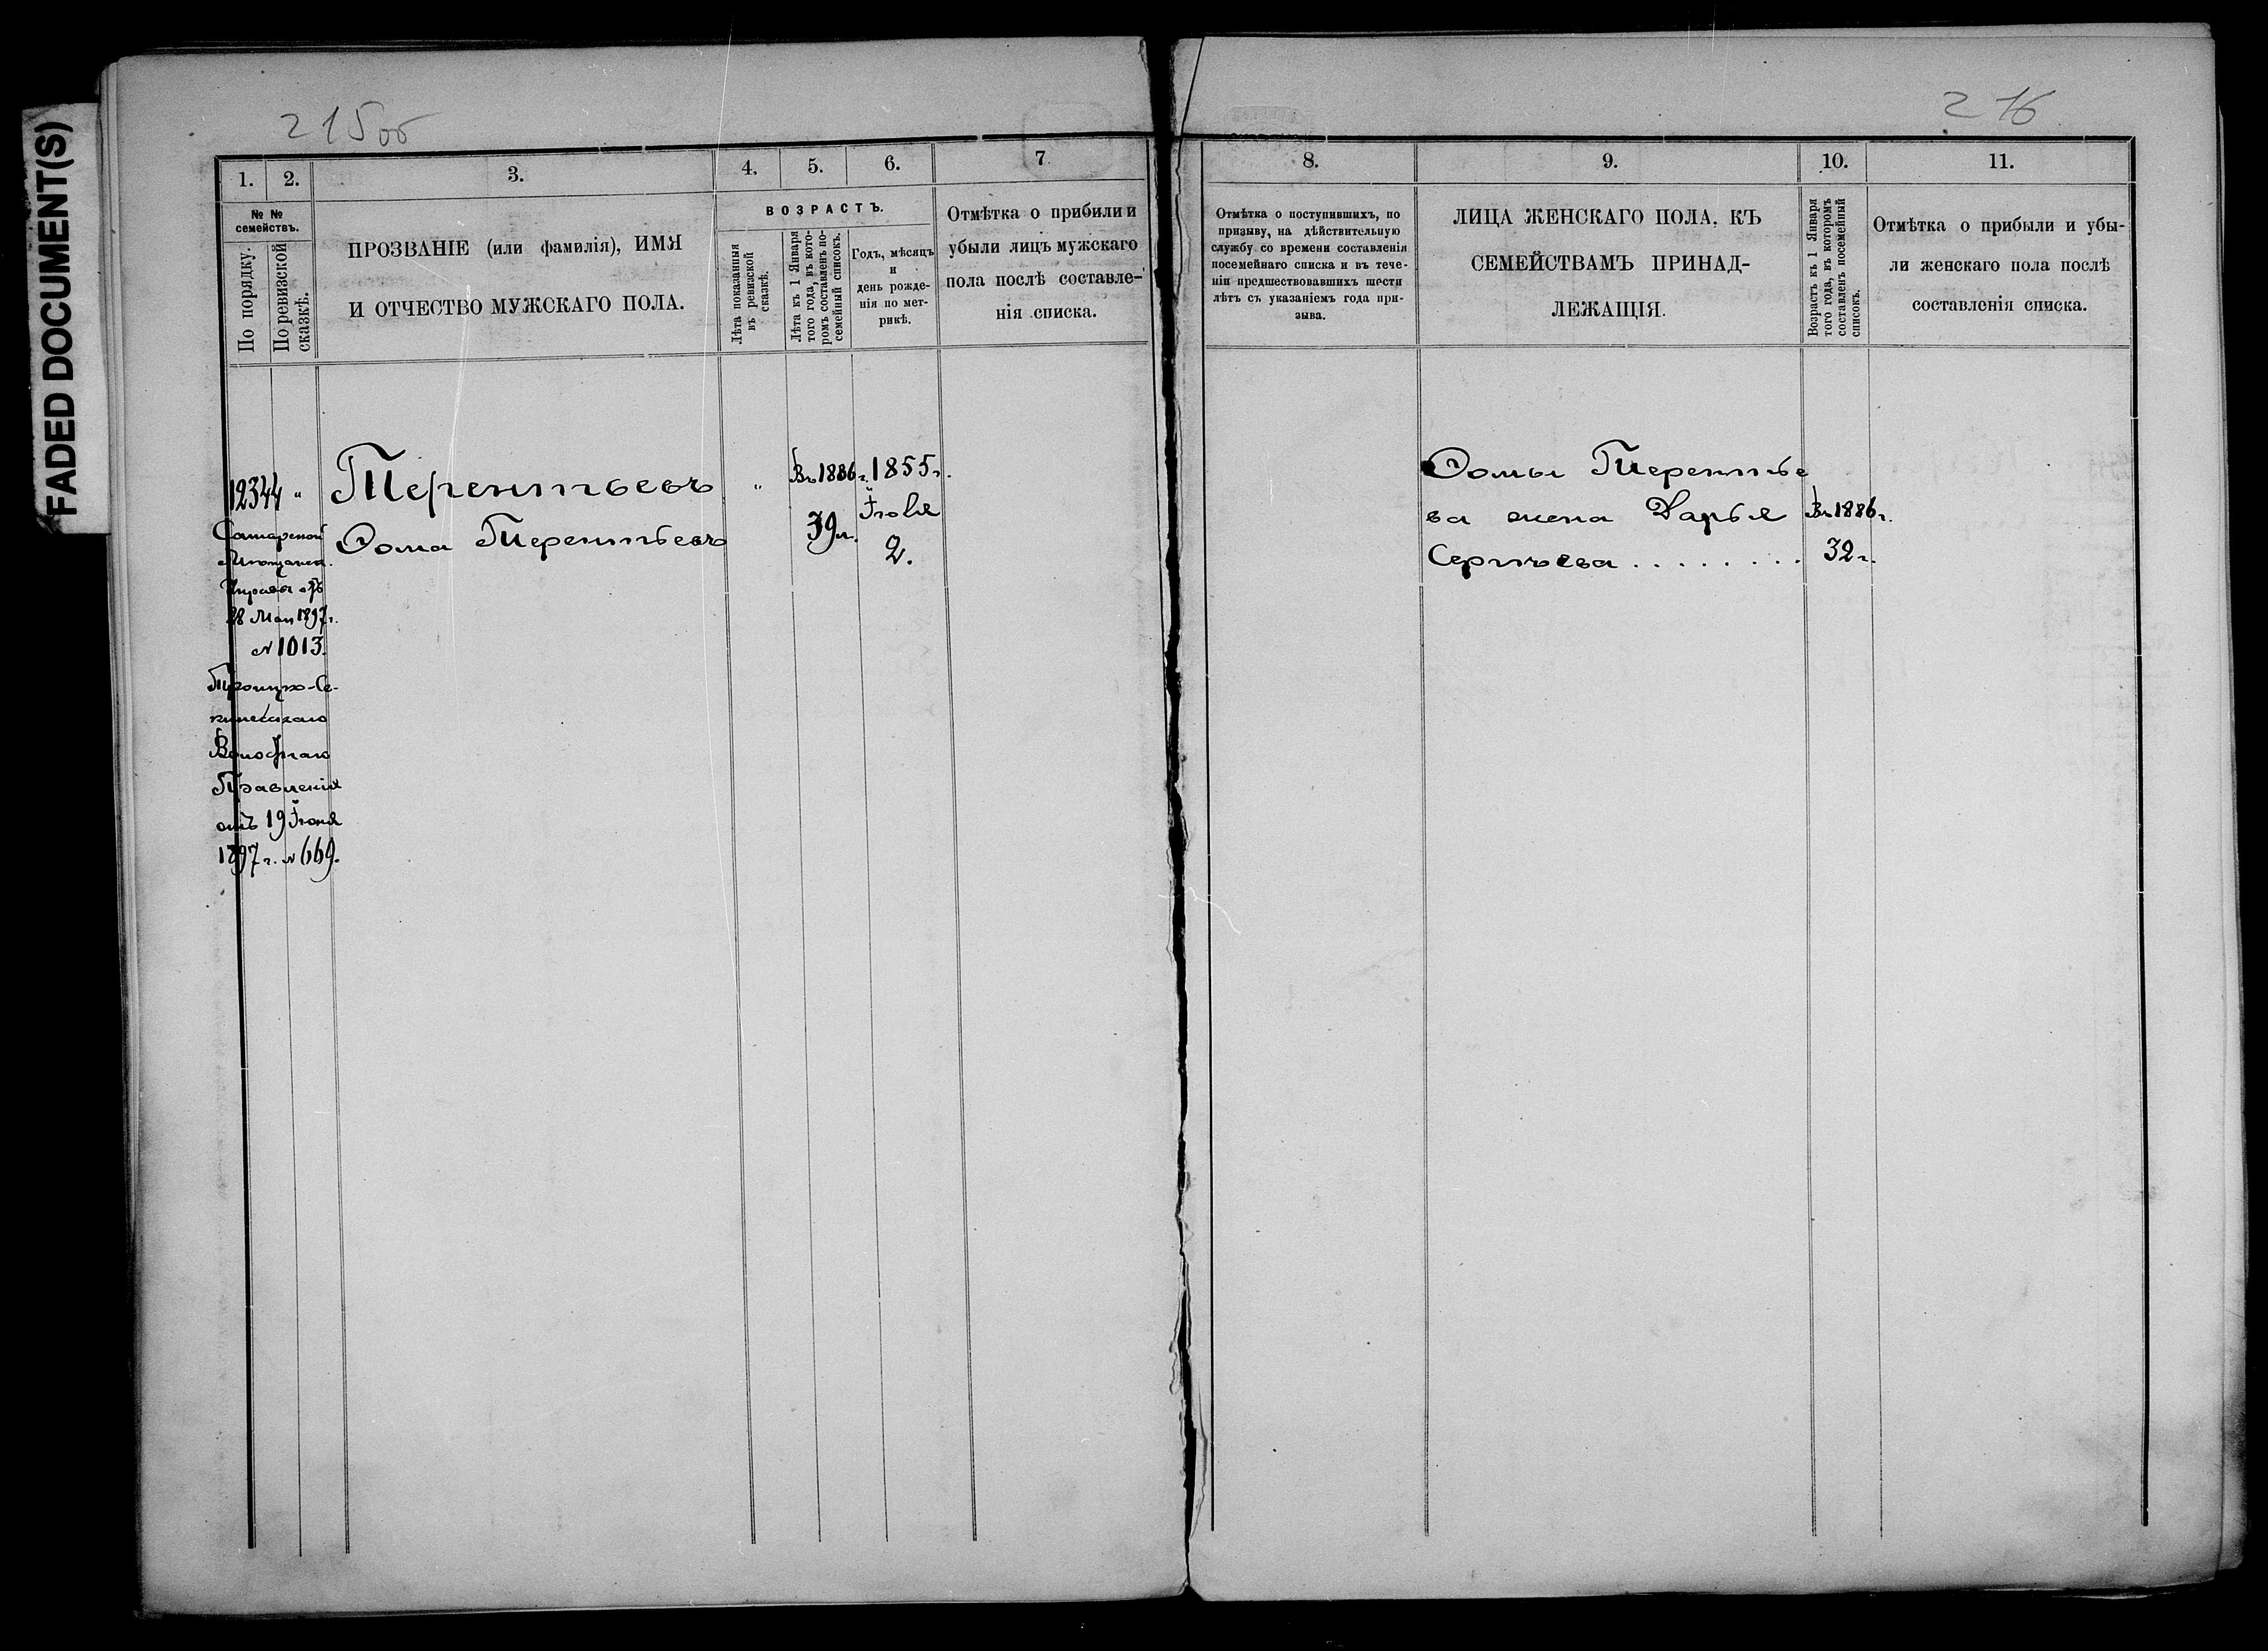 FADED DOCUMENT(S)
215об
216
1.
2.
3.
4.
5.
6.
7.
№ №
семействъ.
По порядку.
По ревизской
сказкѣ.
ПРОЗВАНІЕ (или фамилія), ИМЯ
И ОТЧЕСТВО МУЖСКАГО ПОЛА.
ВОЗРАСТЪ.
Лѣта показанныя
въ ревизской
сказкѣ.
Лѣта къ 1 Января
того года, въ кото-
ромъ составленъ по-
семейный списокъ.
Годъ, мѣсяцъ
и
день рожде-
нія по мет-
рикѣ.
Отмѣтка о прибыли и
убыли лицъ мужскаго
пола послѣ составле-
нія списка.
12344 "
Самарской
Управы отъ
28 Мая 1897 г.
№ 1013.
Троицко-Се-
Волостнаго
Правленія
отъ 19 Іюня
1897 г. № 669.
Терентьевъ
Ѳома Терентьевъ
"
Въ 1886 г.
39 л.
1855 г.
Іюля
2.
8.
9.
10.
11.
Отмѣтка о поступившихъ, по
призыву, на дѣйствительную
службу со времени составленія
посемейнаго списка и въ тече-
ніи предшествовавшихъ шести
лѣтъ съ указаніемъ года при-
зыва.
ЛИЦА ЖЕНСКАГО ПОЛА, КЪ
СЕМЕЙСТВАМЪ ПРИНАД-
ЛЕЖАЩІЯ.
Возрастъ къ 1 Января
того года, въ которомъ
составленъ посемейный
списокъ.
Отмѣтка о прибыли и убы-
ли женскаго пола послѣ
составленія списка.
Ѳомы Терентье
ва жена Дарья
Сергѣева . . . . . . . .
Въ 1886 г.
32 г.